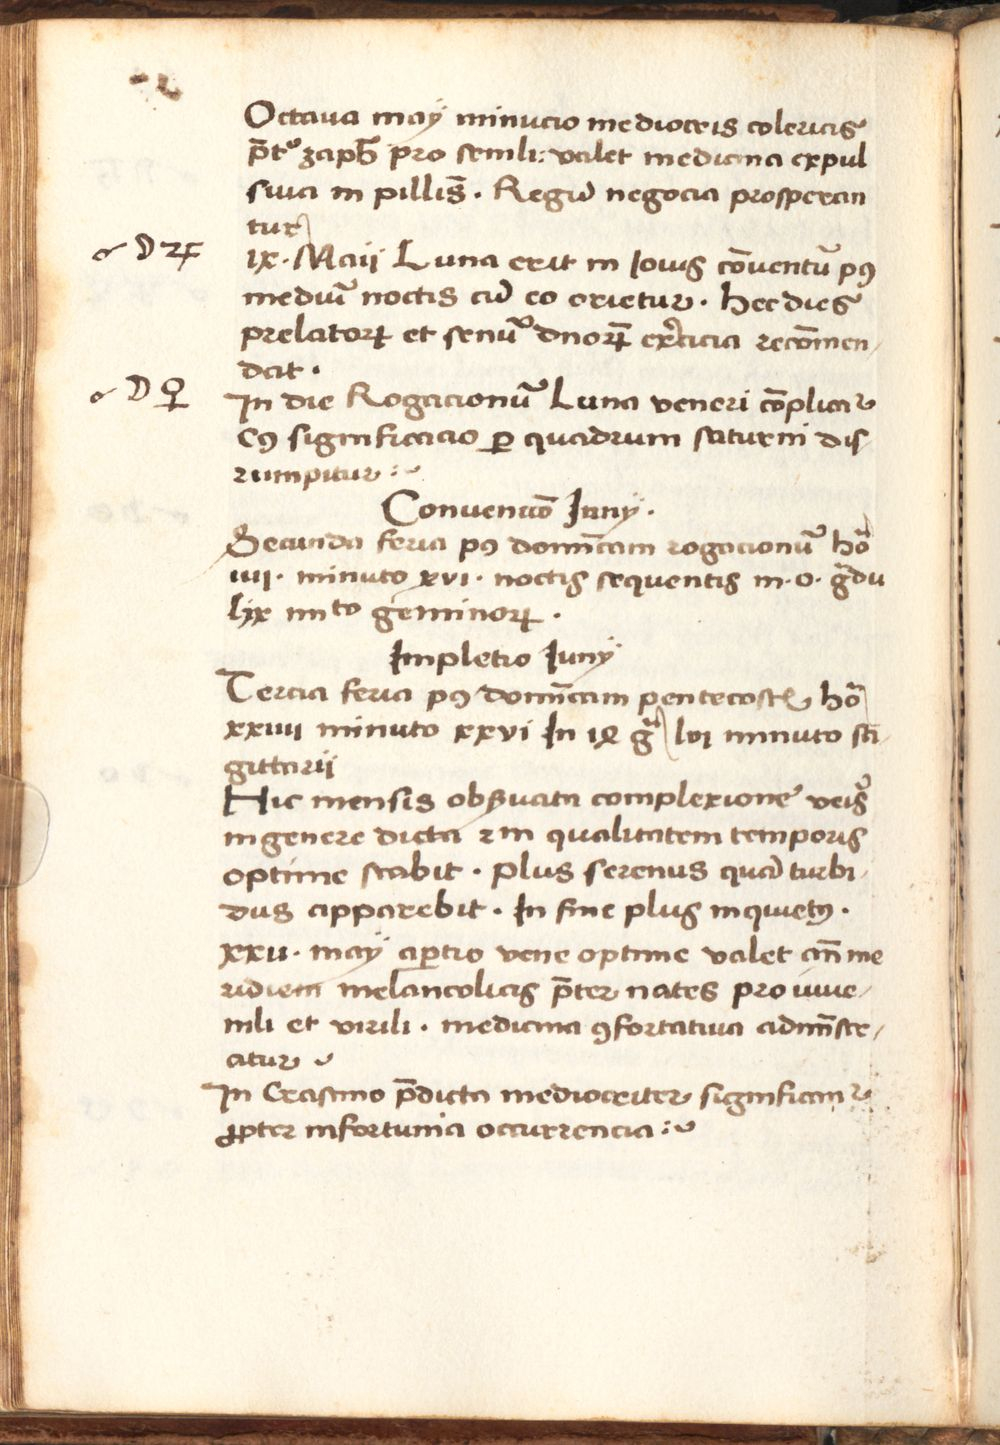 Octaua maÿ minucio mediocris colericis
p̄t⁹ zaph̄ pro senili: valet medicina expul
siua in pillis̄. Regiū negocia prosperan
tur
☌ ☽ ♃ ix. Maii Luna erit in Iouis cōuentū pꝯ
mediū noctis cū eo orietur. hec dies
prelatorꝝ et senū dnorꝝ exercicia recōmen
dat.
☌ ☽ ♀ In die Rogacionū Luna veneri cōplicar
Cꝯ significacio ꝑ quadrum saturni dis
rumpitur:~
Conuencō Iunÿ.
Secunda feria pꝯ domīcam rogacionū ho
iiii. minuto xvi. noctis sequentis in. o. gdu
lix mīto geminorꝝ.
Impletio Iunÿ
Tercia feria pꝯ domīcam pentecost ho
xxiiii minuto xxvi In ix g lvi minuto sa
gittarii
Hic mensis obẜuata complexione veris
in genere dicta ⁊ in qualitatem temporis
optime stabit. Plus serenus quā turbi
dus apparebit. In fine plus inquietꝯ.
xxii. maÿ aꝑtio vene optime valet an̄ me
ridiem melancolicis p̄ter nates pro iuue
nili et virili. medicina ꝯfortatiua adm̄istr
atur
In Crastino p̄dicta mediocriter significan
ꝓpter infortunia occurrencia:~